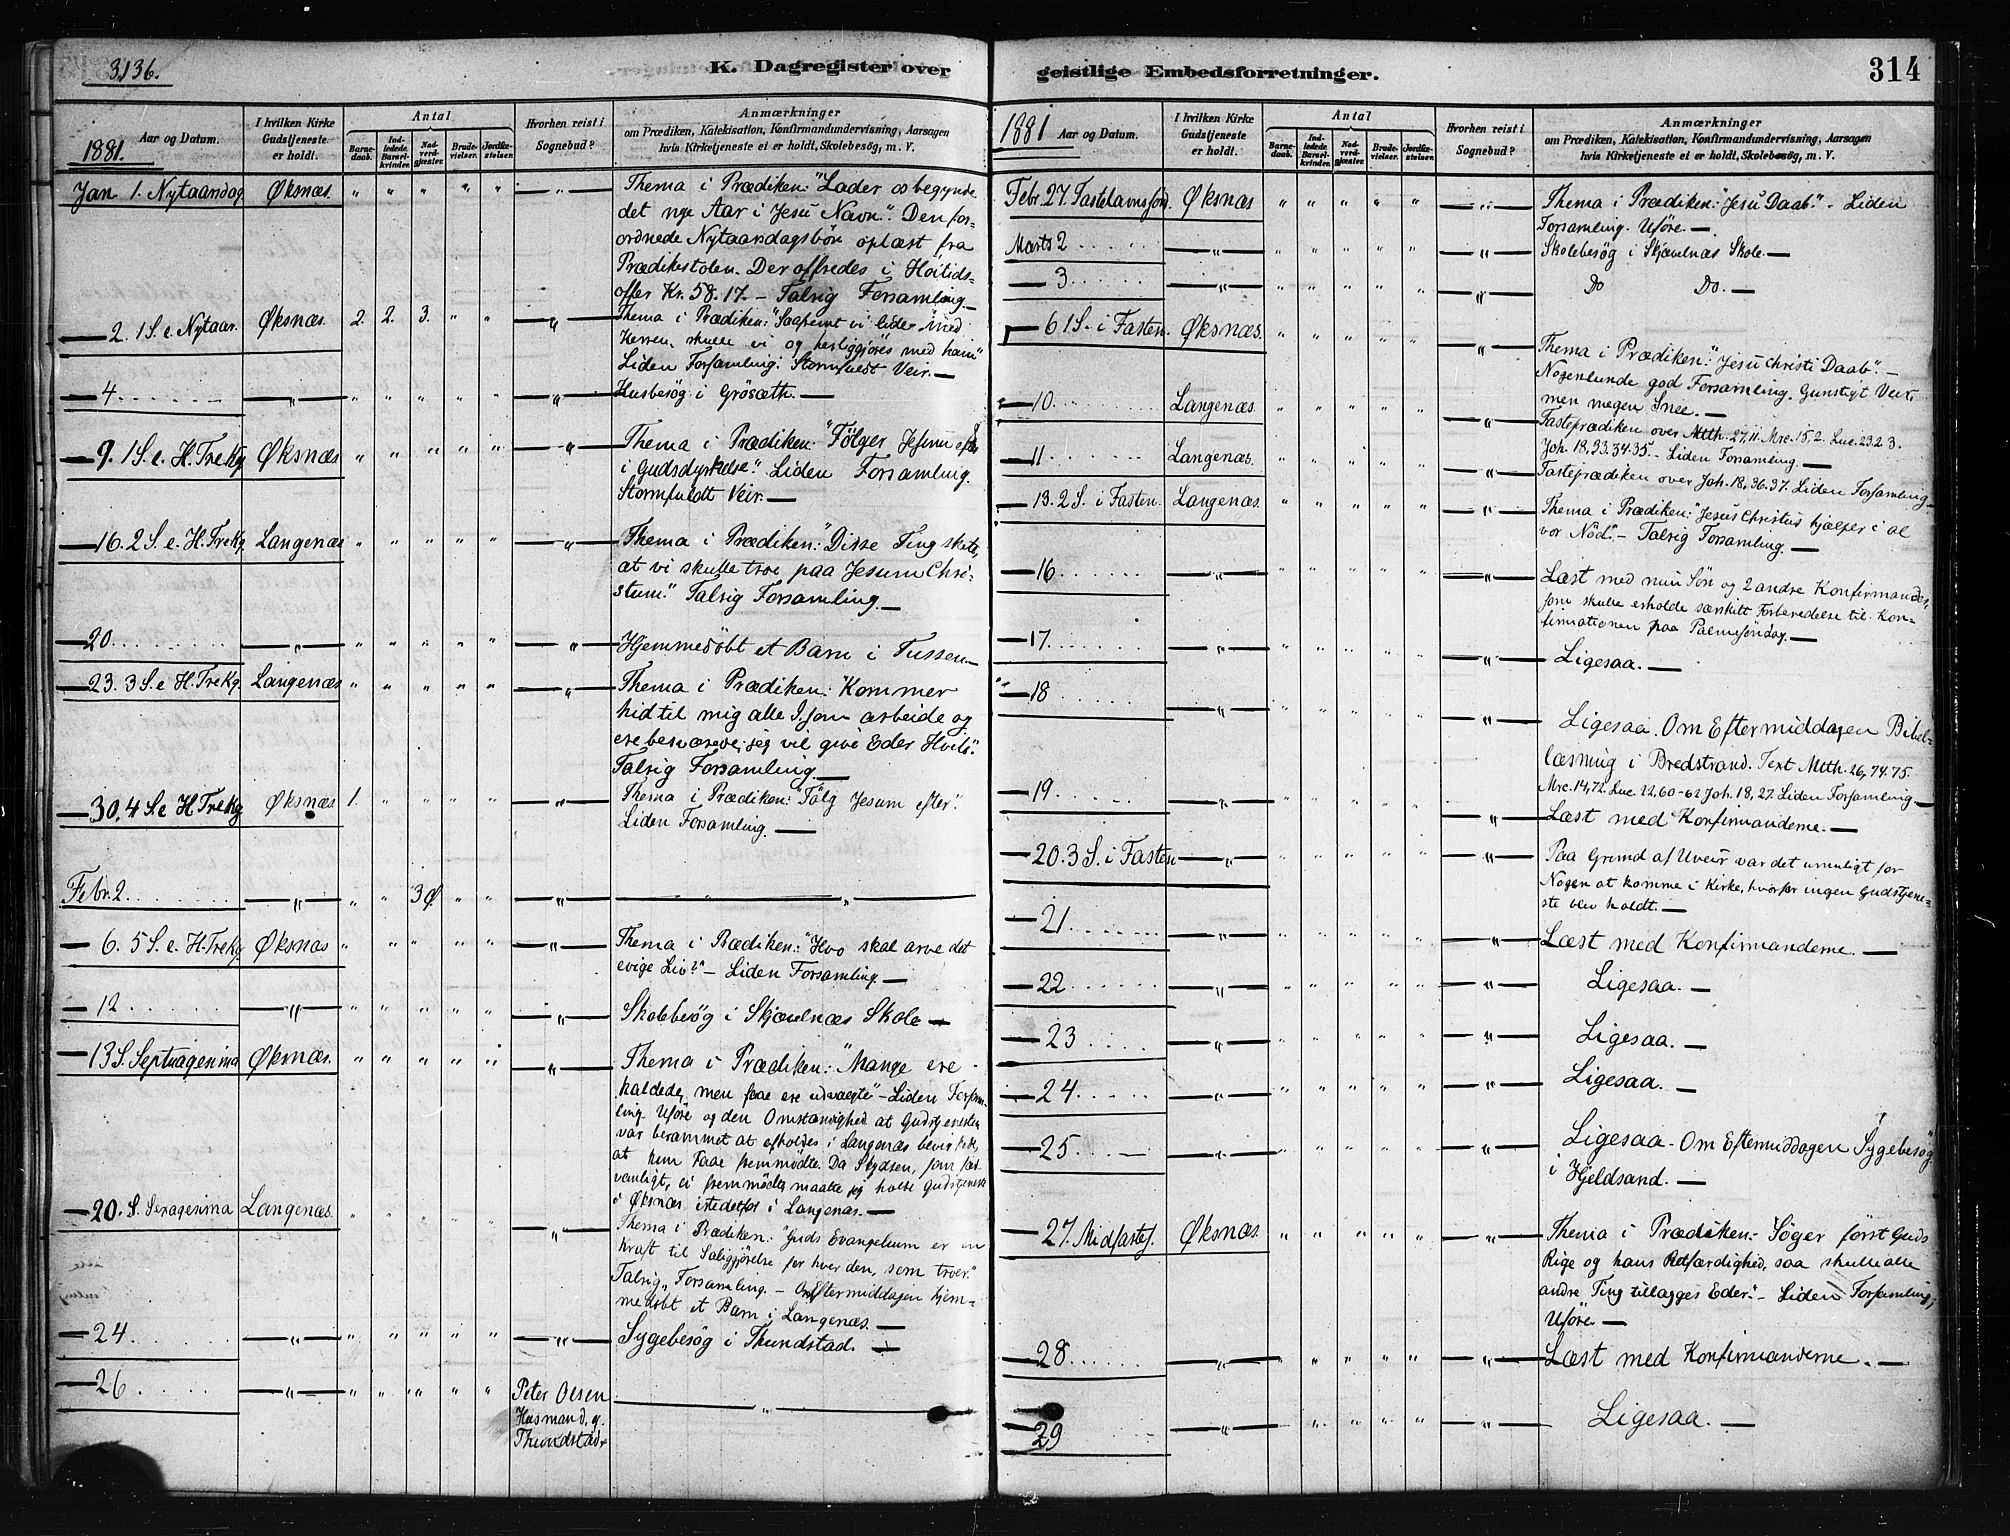 3136.
K. Dagregister over
Aar og Datum.
1881.
I hvilken Kirke
Gudstjeneste
er holdt.
Antal
Barne-
daab.
Ind-
ledede
Barsel-
kvinder.
Nad-
verd-
gjæster.
Brude-
vielser.
Jordfæ-
stelser.
Hvorhen reist i
Sognebud?
Anmærkninger
om Prædiken, Katekisation, Konfirmandundervisning, Aarsagen
hvis Kirketjeneste ei er holdt, Skolebesøg, m. V.
Jan 1. Nytaarsdag Øksnæs. " " " " " — " —
Thema i Prædiken: "Lader os begynde
det nye Aar i Jesu Navn". Den for-
ordnede Nytaarsdagsbön oplæst fra
Prædikestolen. Der offredes i Höitids-
offer Kr. 58.17. — Talrig Forsamling. —
— 2. 1 S. e. Nytaar. Øksnæs. 2. 2. 3. " " — " —
Thema i Prædiken: "Saafremt vi lider med
Herren, skulle vi og herliggjöres med ham"
Liden Forsamling. Stormfuldt Veir. —
— 4 — " — " " " " " — " — Husbesög i Grösæth. —
— 9. 1 S. e. H. Tre Kg. Øksnæs " " " " " — " —
Thema i Prædiken: "Fölger Jesum efter
i Gudsdyrkelse". Liden Forsamling.
Stormfuldt Veir. —
— 16. 2 S. e. H. Tre Kg. Langenæs " " " " " — " —
Thema i Prædiken: "Disse Ting skete,
at vi skulle troe paa Jesum Chri-
stum." Talrig Forsamling. —
— 20. — " — " " " " " — " — Hjemmedöbt et Barn i Tussen —
— 23. 3 S. e. H. Tre Kg. Langenæs " " " " " — " —
Thema i Prædiken: "Kommer
hid til mig alle I, som arbeide og
ere besværede, jeg vil give Eder Hvile".
Talrig Forsamling —
— 30. 4 S. e. H. Tre Kg. Øksnæs 1. " " " " — " —
Thema i Prædiken: "Fölg Jesum efter".
Liden Forsamling. —
Febr. 2. — " — " " 3 Ø. " " — " — — " —
— 6. 5 S. e. H. Tre Kg. Øksnæs " " " " " — " —
Thema i Prædiken: "Hvo skal arve det
evige Liv?" — Liden Forsamling. —
— 12 — " — " " " " " — " — Skolebesög i Skjævelnæs Skole —
— 13 S. Septuagesima Øksnæs. " " " " " — " —
Thema i Prædiken: "Mange ere
kaldede, men faae ere udvalgte" — Liden Forsam-
ling. Uföre og den Omstændighed at Gudstjenesten
var berammet at afholdes i Langenæs bevirkede,
at kun Faae fremmödte. Da Skydsen, som sæd-
vanligt, ei fremmödte, maatte jeg holde Gudstjeneste
i Øksnæs istedetfor i Langenæs. —
— 20. S. Sexagesima Langenæs. " " " " " — " —
Thema i Prædiken: "Guds Evangelium er en
Kraft til Saliggjörelse for hver den, som troer."
Talrig Forsamling. — Om Eftermiddagen hjem-
medöbt et Barn i Langenæs. —
— 24 — " — " " " " " — " — Sygebesög i Thundstad. —
— 26 — " — " " " " " Peter Olsen — " —
Husmand, g.
Thundstad.
geistlige Embedsforretninger.
314
1881
Aar og Datum.
I hvilken Kirke
Gudstjeneste
er holdt.
Antal
Barne-
daab.
Ind-
ledede
Barsel-
kvinder.
Nad-
verd-
gjæster.
Brude-
vielser.
Jordfæ-
stelser.
Hvorhen reist i
Sognebud?
Anmærkninger
om Prædiken, Katekisation, Konfirmandundervisning, Aarsagen
hvis Kirketjeneste ei er holdt, Skolebesøg, m. V.
Febr. 27. Fastelavnssönd. Øksnæs " " " " " — " —
Thema i Prædiken: "Jesu Daab". — Liden
Forsamling. Uföre. —
Marts 2 — " — " " " " " — " — Skolebesög i Skjævelnæs Skole. —
— 3 — " — " " " " " — " — Do Do. —
— 6 1 S. i Fasten. Øksnæs. " " " " " — " —
Thema i Prædiken: "Jesu Christi Daab". —
Nogenlunde god Forsamling. Gunstigt Veir,
men megen Snee. —
— 10. Langenæs. " " " " " — " —
Fasteprædiken over Mtth. 27,11. Mrc. 15,2. Luc. 23.2 3.
Joh. 18,33.34.35. — Liden Forsamling. —
— 11 Langenæs. " " " " " — " —
Fasteprædiken over Joh. 18,36.37. Liden Forsamling —
— 13. 2 S. i Fasten. Langenæs. " " " " " — " —
Thema i Prædiken: "Jesus Christus hjælper i al
vor Nöd". — Talrig Forsamling. —
— 16 — " — " " " " " — " —
Læst med min Sön og 2 andre Konfirmander,
som skulle erholde særskilt Forberedelse til Kon-
firmationen paa Palmesöndag. —
— 17. — " — " " " " " — " — Ligesaa. —
— 18 — " — " " " " " — " —
Ligesaa. Om Eftermiddagen Bibel-
læsning i Bredstrand. Text Mtth. 26,74.75.
Mrc. 14,72. Luc. 22,60-62 Joh. 18,27. Liden Forsamling. —
— 19 — " — " " " " " — " — Læst med Konfirmanderne. —
— 20. 3 S. i Fasten — " — " " " " " — " —
Paa Grund af Uveir var det umuligt for
Nogen at komme i Kirke, hvorfor ingen Gudstjene-
ste blev holdt. —
— 21 — " — " " " " " — " — Læst med Konfirmanderne. —
— 22 — " — " " " " " — " — Ligesaa. —
— 23 — " — " " " " " — " — Ligesaa. —
— 24 — " — " " " " " — " — Ligesaa. —
— 25 — " — " " " " " — " —
Ligesaa — Om Eftermiddagen Sygebesög
i Hjeldsand. —
— 27. Midfastes. Øksnæs. " " " " " — " —
Thema i Prædiken: Söger först Guds
Rige og hans Retfærdighed, saa skulle alle
andre Ting tillægges Eder." — Liden Forsamling;
Uföre. —
— 28 — " — " " " " " — " — Læst med Konfirmanderne. —
— 29 — " — " " " " " — " — Ligesaa. —